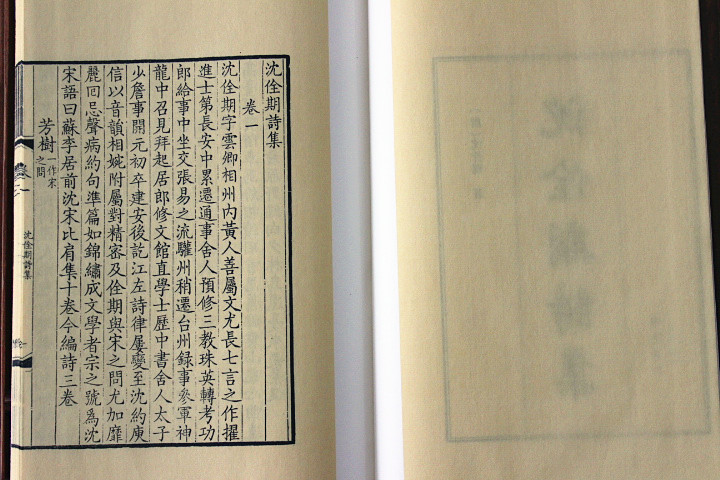 沈佺期詩集
卷一
沈佺期字雲卿相州內黃人善屬文尤長七言之作擢
進士第長安中累遷通事舍人預修三教珠英轉考功
郎給事中坐交張易之流驩州稍遷台州録事參軍神
龍中召見拜起居郎修文館直學士歷中書舍人太子
少詹事開元初卒建安後訖江左詩律屢變至沈約庾
信以音韻相婉附屬對精密及佺期與宋之問尤加靡
麗回忌聲病約句準篇如錦繡成文學者宗之號為沈
宋語曰蘇李居前沈宋比肩集十卷今編詩三卷
芳樹一作宋
之問
卷一
沈佺期詩集
沈佺期詩集